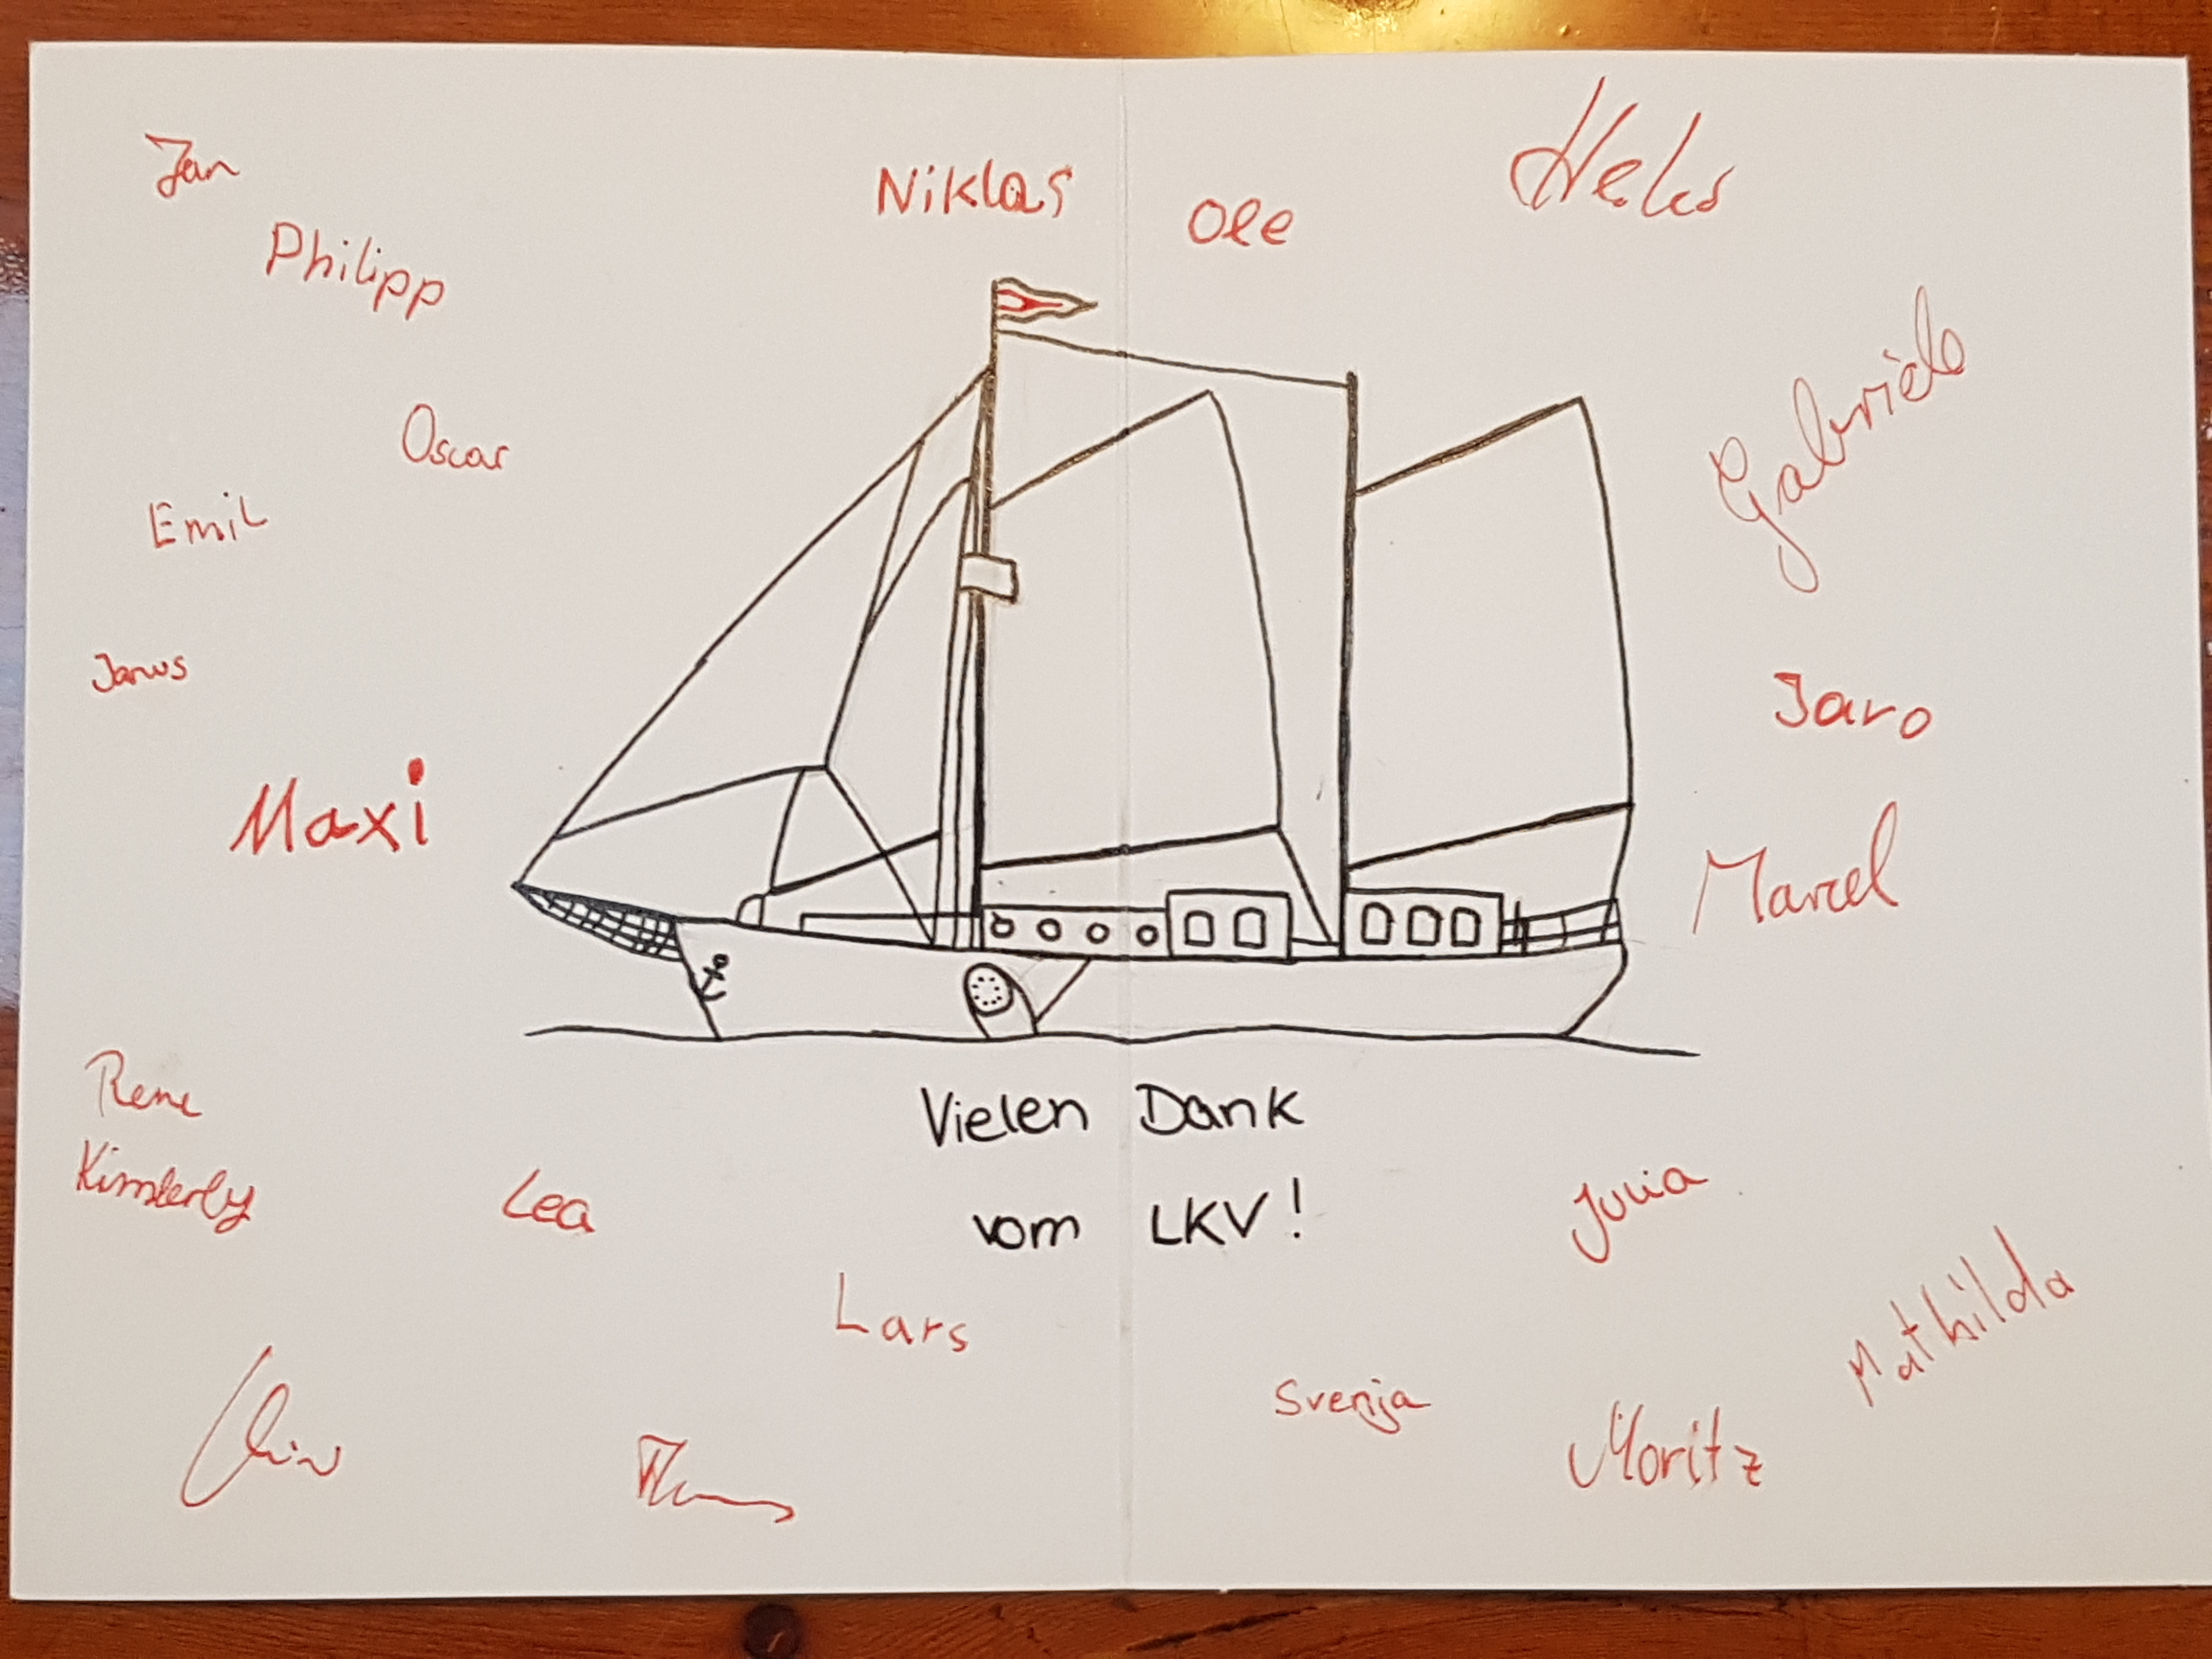 Jan
Niklas
Ole
Philipp
Oscar
Gabriele
Emil
Jarus
Jaro
Maxi
Marcel
Rene
Vielen Dank
Kimberly
Lea
vom LKV!
Julia
Lars
Mathilda
Svenja
Moritz